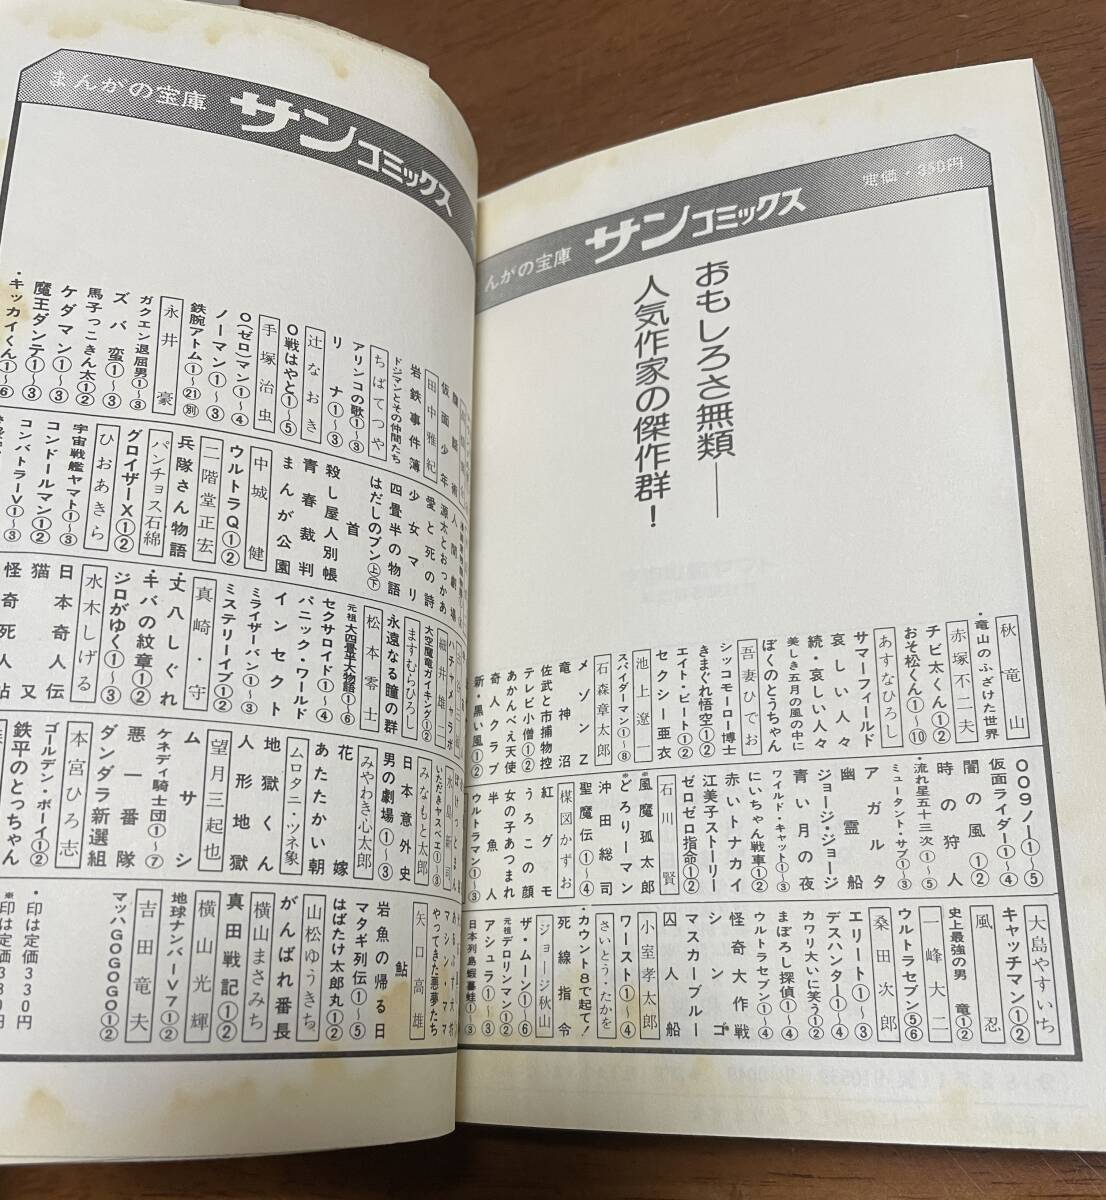 定価・350円
サンコミックス
んがの宝庫
おもしろさ無類――
人気作家の傑作群!
秋竜山
・竜山のふざけた世界
赤塚不二夫
チビ太くん①②
おそ松くん①~⑩
あすなひろし
哀しい人々
続・哀しい人々
サマーフィールド
美しき五月の風の中に
ぼくのとうちゃん
吾妻ひでお
シッコモーロー博士
きまぐれ悟空①②
エイト・ビート①②
セクシー亜衣
池上遼一
スパイダーマン①~⑧
石森章太郎
メゾンZ
竜神沼
佐武と市捕物控
テレビ小僧①②
あかんべえ天使
奇人クラブ
新・黒い風①②
009ノ①~⑤
仮面ライダー①~④
闇の風①②
時の狩人
・流れ星五十三次①~⑤
ミュータント・サブ①~③
アガルタ
幽霊船
ジョージ・ジョージ
青い月の夜
ワイルド・キャット①~③
にいちゃん戦車①②
赤いトナカイ
江美子ストーリー
ゼロゼロ指令①②
石川賢
風魔孤太郎
※どろりーマン
沖田総司
聖魔伝①~④
楳図かずお
紅グモ
うろこの顔
女の子あつまれ
半魚人
ウルトラマン①~③
大島やすいち
キャッチマン①②
風忍
史上最強の男 竜①②
一峰大二
ウルトラセブン⑤⑥
桑田次郎
エリート①~③
デスハンター①~④
カワリ大いに笑う①②
まぼろし探偵①~④
ウルトラセブン①~④
怪奇大作戦
シンゴ
マスカーブルー
囚人船
小室孝太郎
ワースト①~④
さいとう・たかを
・カウント8で起て!
死線指令
ジョージ秋山
ザ・ムーン①~⑥
元祖デロリンマン①②
アシュラ①~③
日本列島蝦蟇蛙①~③
まんがの宝庫
サンコミックス
田中雅紀
岩鉄事件簿
ドジマンとその仲間たち
ちばてつや
アリンコの歌①~③
リナ①~③
辻なおき
0戦はやと①~⑤
手塚治虫
0(ゼロ)マン①~④
ノーマン①~③
鉄腕アトム①~㉑別
永井豪
ガクエン退屈男①~③
ズバ蛮①~③
馬子っこきん太①②
ケダマン①~③
魔王ダンテ①~③
・キッカイくん①~⑥
源太とおっかあ
愛と死の詩
少女マリ
四畳半の物語
はだしのブン上下
首
殺し屋人別帳
青春裁判
まんが公園
中城健
ウルトラQ①②
二階堂正宏
兵隊さん物語
パンチョス石綿
グロイザーX①②
ひおあきら
宇宙戦艦ヤマト①~③
コンドールマン①②
コンバトラーV①~③
細井雄二
大空魔竜ガイキング①②
ますむらひろし
永遠なる瞳の群
松本零士
元祖大四畳半大物語①~⑥
セクサロイド①~④
パニック・ワールド
インセクト
ミライザーバン①~③
ミステリーイブ①②
真崎・守
・丈八しぐれ
・キバの紋章①②
ジロがゆく①~③
水木しげる
日本奇人伝
猫又
怪奇死人帖
いただきヤスベエ①~③
みなもと太郎
日本意外史
男の劇場①~③
みやわき心太郎
花嫁
あたたかい朝
ムロタニ・ツネ象
地獄くん
人形地獄
望月三起也
ムサシ
ケネディ騎士団①~⑦
悪一番隊
ダンダラ新選組
本宮ひろ志
ゴールデン・ボーイ①②
鉄平のとっちゃん
やってきた悪夢たち
矢口高雄
鮎
岩魚の帰る日
マタギ列伝①~⑤
はばたけ太郎丸①②
山松ゆうきち
がんばれ番長
横山まさみち
真田戦記①②
横山光輝
地球ナンバーV7①②
吉田竜夫
マッハGOGOGO①②
・印は定価330円
※印は定価380円